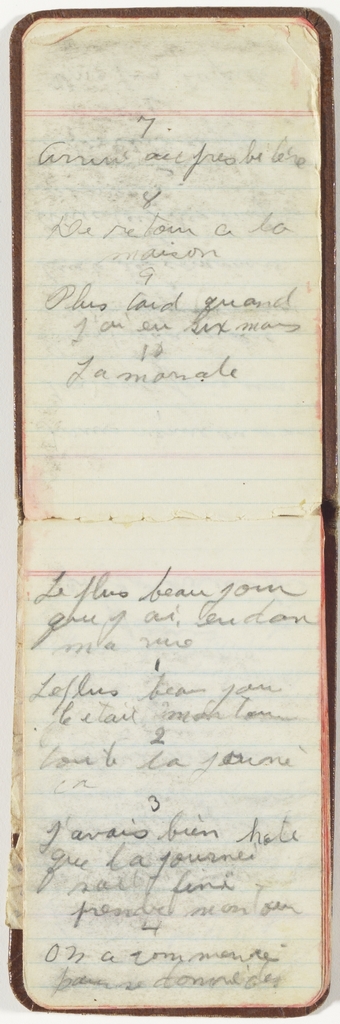 7
arrivé au presbitère
8
De retour a la
maison
9
Plus tard quand
j'ai eu six mois
10
La morale
Le plus beau jour
que j'ai eu dan
ma vie
1
Le plus beau jour
s'etait mon tour
2
toute la journé
3
J'avais bien hate
que la journei
soit finé
prendre mon tour
4
On a commencé
pour se donné des